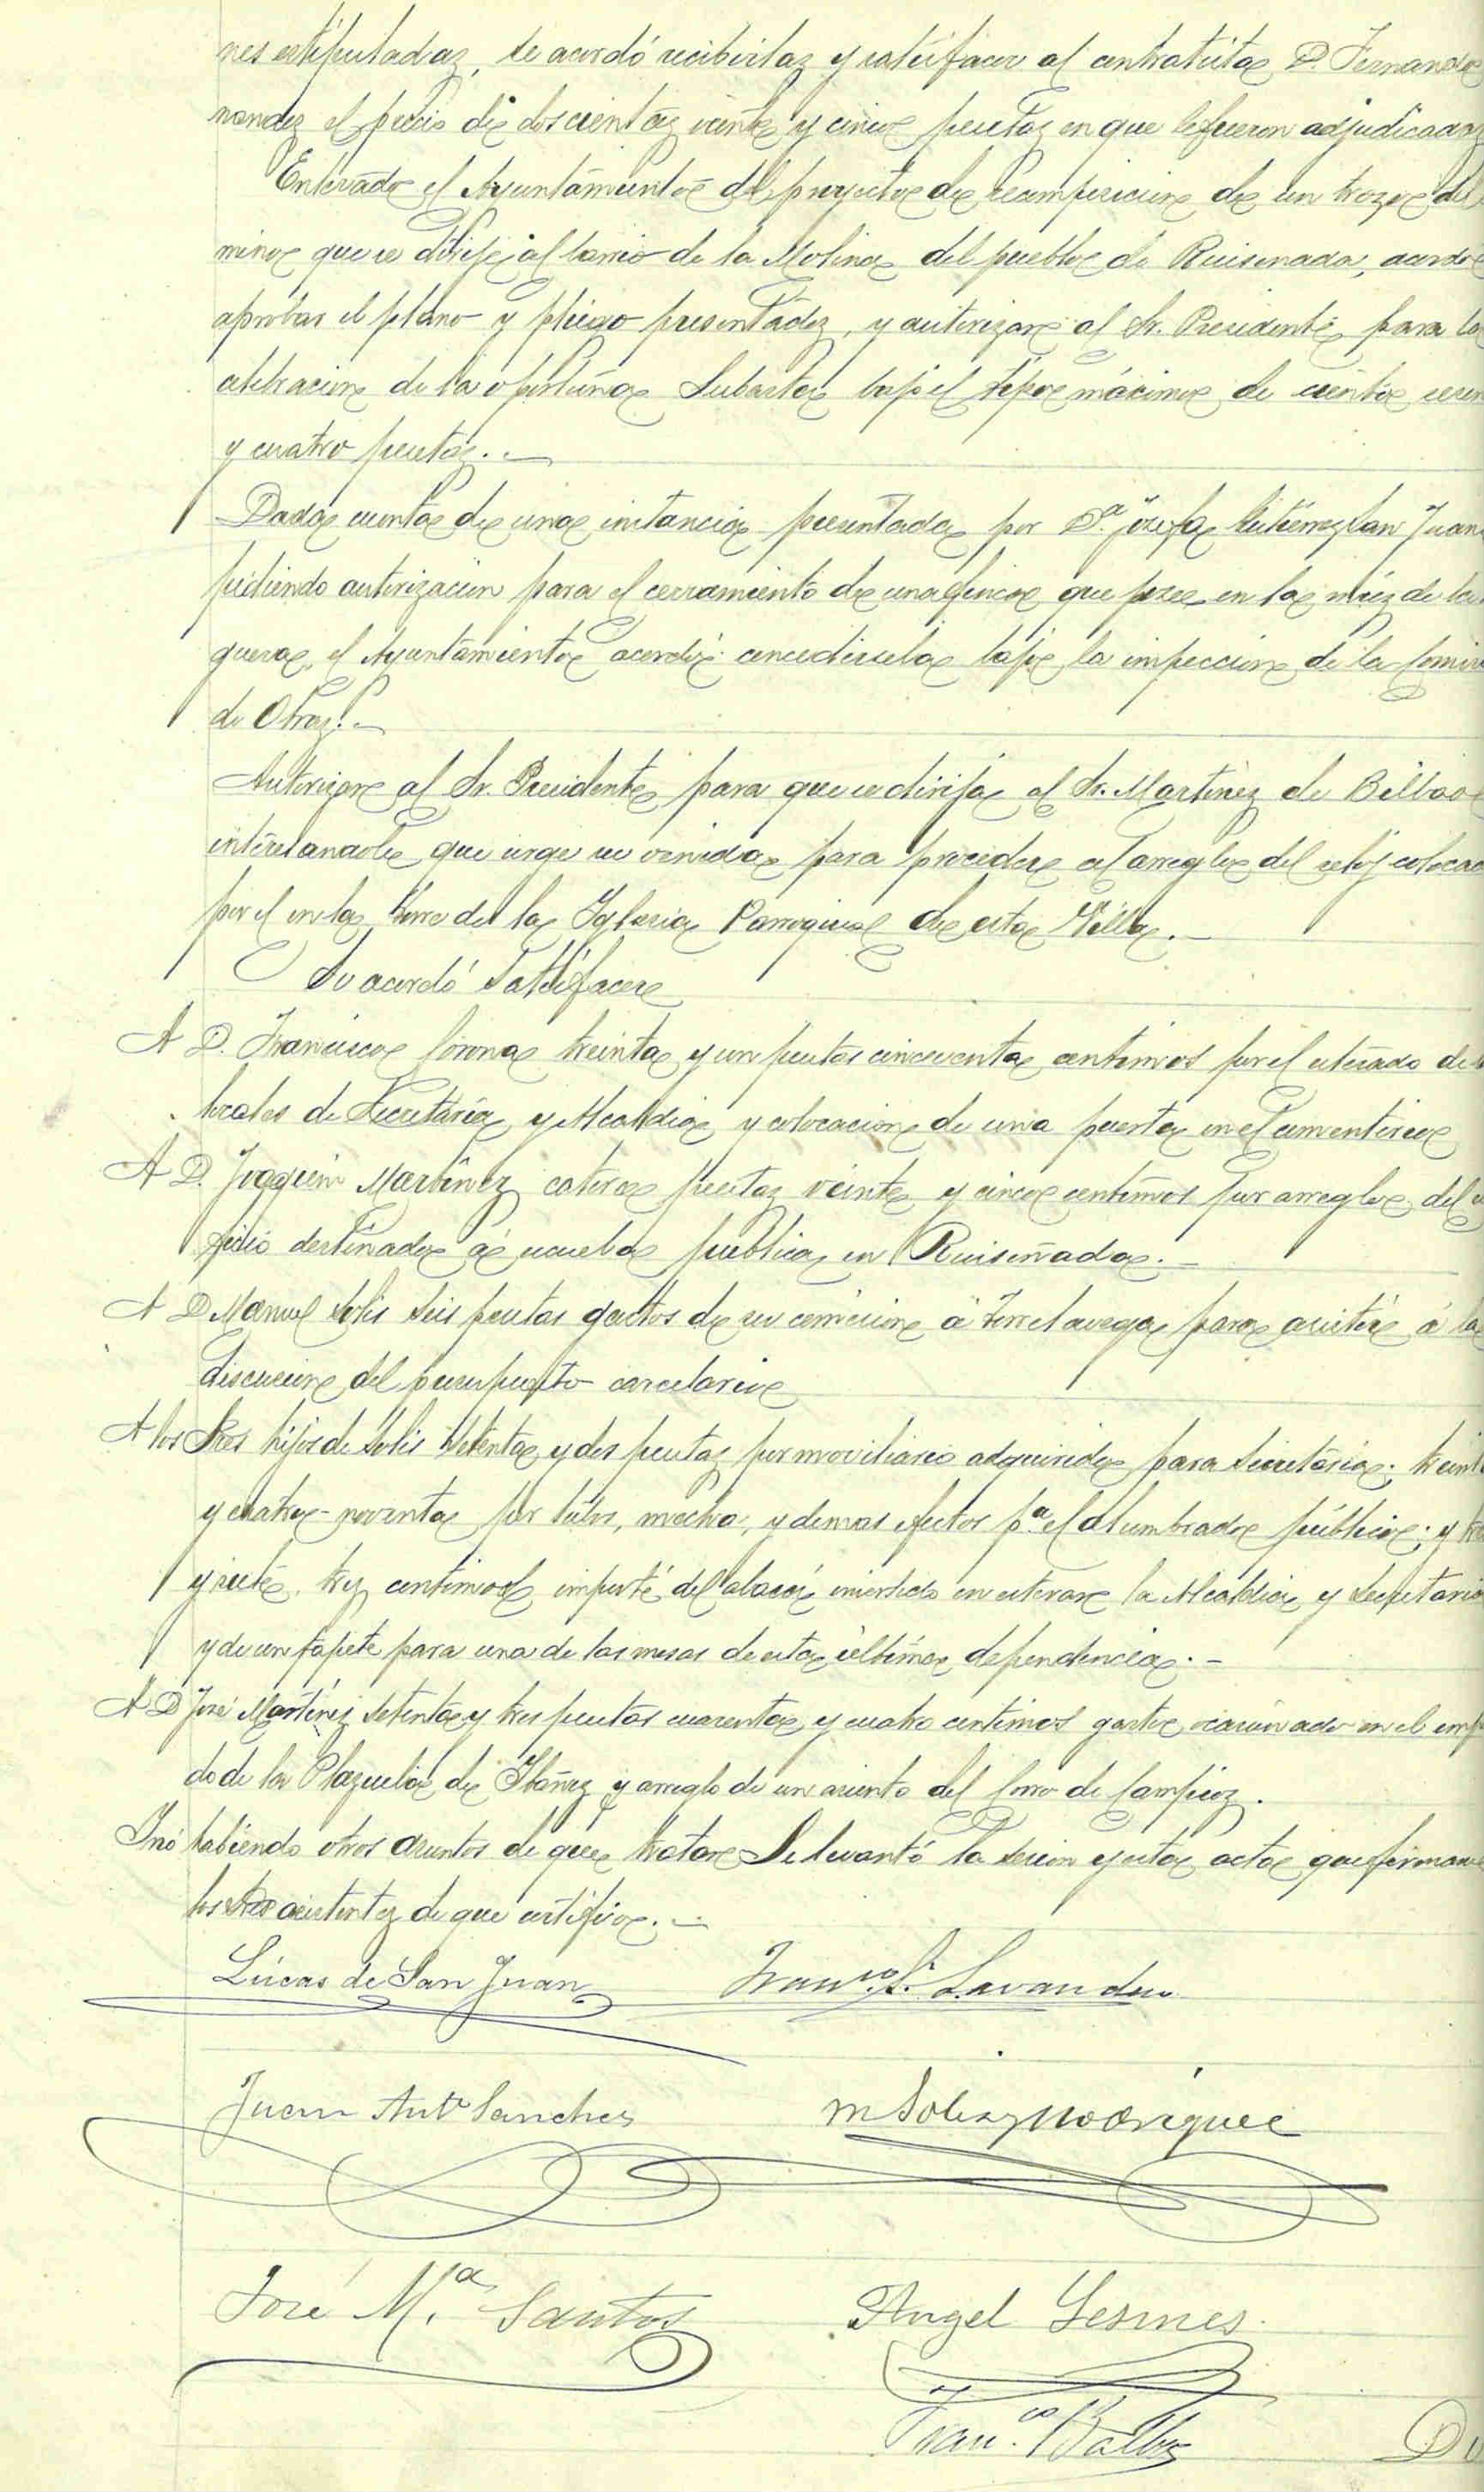 nes estipuladas, se acordó recibirlas y satisfacer al contratista D. Fernando
nandez el precio de doscientas veinte y cinco pesetas en que le fueron adjudicadas
Enterado el Ayuntamiento del proyecto de recomposicion de un trozo del
mino que se dirije al barrio de la Molina del pueblo de Ruiseñada, acordó
aprobar el plano y pliego presentados, y autorizar al Sr. Presidente para la
celebracion de la oportuna Subasta bajo el tipo máximo de ciento sesen
y cuatro pesetas.
Dada cuenta de una instancia presentada por Dª. Josefa Gutierrez San Juan
pidiendo autorizacion para el cerramiento de una finca que posee en la mies de la
guera, el Ayuntamiento acordó concedersela bajo la inspeccion de la Comisi
de Obras.
Autorizar al Sr. Presidente para que se dirija al Sr. Martinez de Bilbao
interesandole que urge su venida para proceder al arreglo del reloj colocado
por el en la torre de la Iglesia Parroquial de esta Villa.
Se acordó Satisfacer
A D. Francisco Corona treinta y un pesetas cincuenta centimos por el esterado de
locales de Secretaría y Alcaldia y colocacion de una puerta en el cementerio
A D. Joaquin Martinez catorce pesetas veinte y cinco centimos por arreglo del e
ficio destinado á escuela publica en Ruiseñada.
A D Manuel Solis seis pesetas gastos de su comision á Torrelavega para asistir á la
discusion del presupuesto carcelario
A los Sres hijos de Solis Setenta y dos pesetas por moviliario adquirido para Secretaria; treint
y cuatro noventa por tubos, mecha, y demas efectos pª el alumbrado público; y tre
y siete, tres centimos importe del invertido en esterar la Alcaldia y Secretaria
y de un tapete para una de las mesas de esta última dependencia.
A D José Martinez Setenta y tres pesetas cuarenta y cuatro centimos gasto ocasionado en el emp
do de la Plazuela de Ibañez y arreglo de un asiento del Corro de Campios.
Y no habiendo otros asuntos de que tratar Se levantó la sesion y esta acta que firman
los Sres asistentes de que certifico.
Lúcas de San Juan Franco. S. Lavandero
Juan Antº Sanchez M Solis y Rodriguez
José Mª. Santos Angel Lesmes
Franco. Balbas